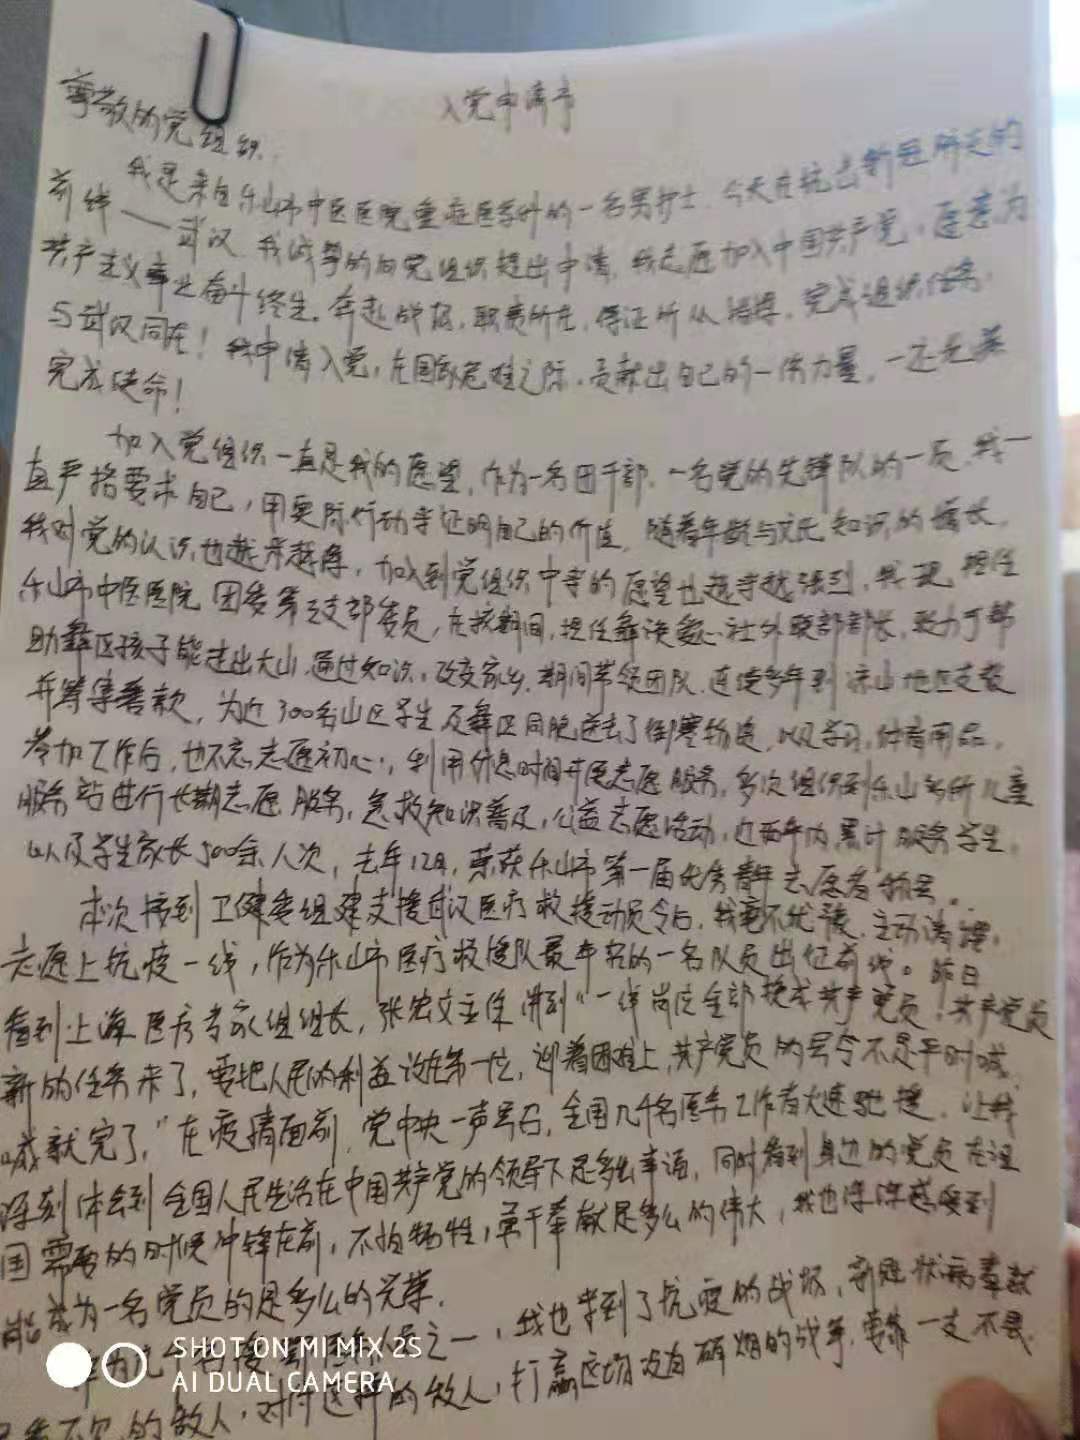 入党申请书
尊敬的党组织:
我是来自乐山市中医医院重症医学科的一名男护士. 今天在抗击新冠肺炎的
前线——武汉. 我诚挚的向党组织提出申请, 我志愿加入中国共产党, 愿意为
共产主义事业奋斗终生。奔赴战场, 职责所在, 听从指挥, 完成组织任务,
与武汉同在! 我申请入党, 在国家危难之际, 贡献出自己的一份力量,
完成使命!
加入党组织一直是我的愿望, 作为一名团干部, 一名党的先锋队的一员, 我一
直严格要求自己, 用实际行动来证明自己的价值, 随着年龄与文化知识的增长,
我对党的认识也越来越深, 加入到党组织中来的愿望也越来越强烈, 我现担任
乐山市中医医院团委第三支部委员, 在校期间, 担任社外联部部长, 致力于帮
助彝区孩子能走出大山, 通过知识, 改变家乡, 期间带领团队, 连续多年到凉山地区支教
并筹集善款, 为近300名山区学生及彝区同胞送去了御寒物资, 以及学习, 体育用品,
参加工作后, 也不忘志愿初心, 利用休息时间开展志愿服务, 多次组织到乐山多所儿童
服务站进行长期志愿服务, 急救知识普及, 公益志愿活动, 近两年内累计服务学生,
以及学生家长500余人次, 去年12月, 荣获乐山市第一届优秀青年志愿者称号。
本次接到卫健委组建支援武汉医疗救援动员令后, 我毫不犹豫, 主动请缨,
志愿上抗疫一线, 作为乐山市医疗救援队最年轻的一名队员出征前线。昨日
看到上海医疗专家组组长, 张宏文主任讲到“一线岗位全部换成共产党员, 共产党员
新的任务来了, 要把人民的利益放在第一位, 迎着困难上, 共产党员的号令不是平时喊
喊就完了,”在疫情面前, 党中央一声号召, 全国几千名医务工作者火速驰援, 让我
深刻体会到全国人民生活在中国共产党的领导下是多么幸福, 同时看到身边的党员在祖
国需要的时候冲锋在前, 不怕牺牲, 勇于奉献是多么的伟大, 我也深深感受到
能成为一名党员的是多么的光荣.
作为几千名医务之一, 我也来到了抗疫的战场, 新冠状病毒
的敌人, 对付这样的敌人, 打赢这场没有硝烟的战争, 要靠一支不畏
SHOT ON MI MIX 2S
AI DUAL CAMERA